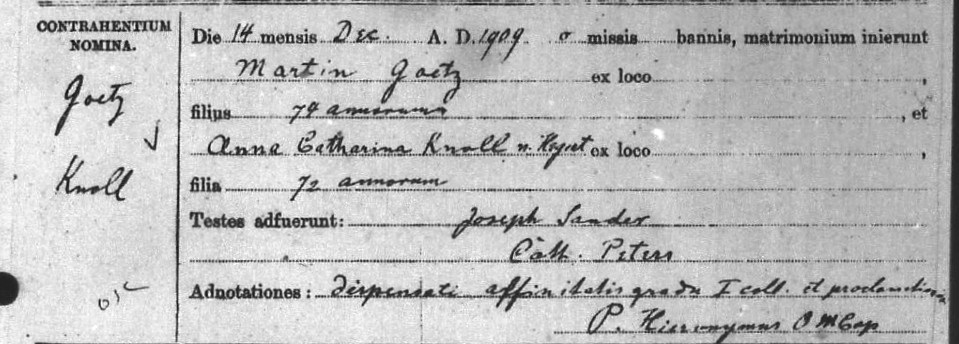 CONTRAHENTIUM
NOMINA.
Goetz
Knoll
Die 14 mensis Dec. A. D. 1909 o missis bannis, matrimonium inierunt
Martin Goetz ex loco ,
filius 74 annorum , et
Anna Catharina Knoll n. ex loco ,
filia 72 annorum
Testes adfuerunt: Joseph Sander
Cath. Peters
Adnotationes: dispensati affinitatis gradu I coll. et
P. Hieronymus O M Cap